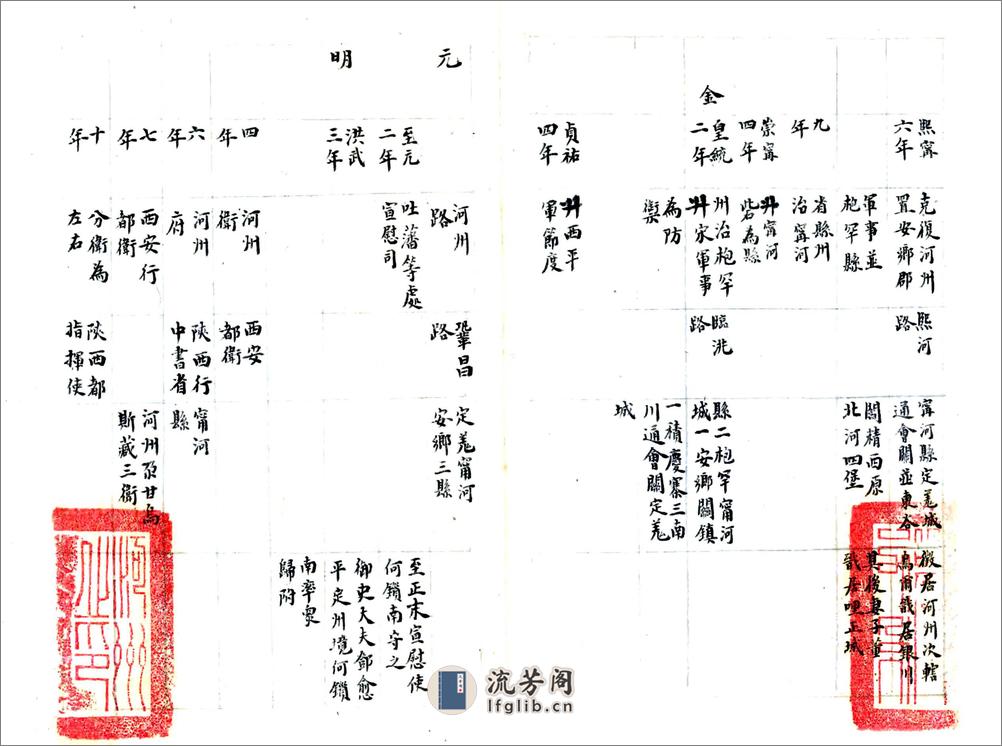 熙甯
六年
克復河州
置安鄉郡
軍事並
枹罕縣
熙河
路
甯河縣定羌城
通會關並東谷
閻精西原
北河四堡
檄居河州次轄
烏爾戩居銀川
其後妻子董
九
年
省縣州
治甯河
崇甯
四年
升甯河
砦為縣
金
皇統
二年
州治枹罕
升家軍事
為防
禦
臨洮
路
縣二枹罕甯河
城一安鄉關鎮
一積慶寨三南
川通會關定羌
城
貞祐
四年
升西平
軍節度
元
河州
路
鞏昌
路
定羌甯河
安鄉三縣
至元
二年
吐蕃等處
宣慰司
至正末宣慰使
何鎖南守之
御史大夫鄧愈
平定州境何鎖
南率衆
歸附
明
洪武
三年
四
年
河州
衛
西安
都衛
六
年
河州
府
陝西行
中書省
甯河
縣
七
年
西安行
都衛
河州朶甘烏
斯藏三衛
十
年
分衛為
左右
陝西都
指揮使
流芳阁
lfglib.cn